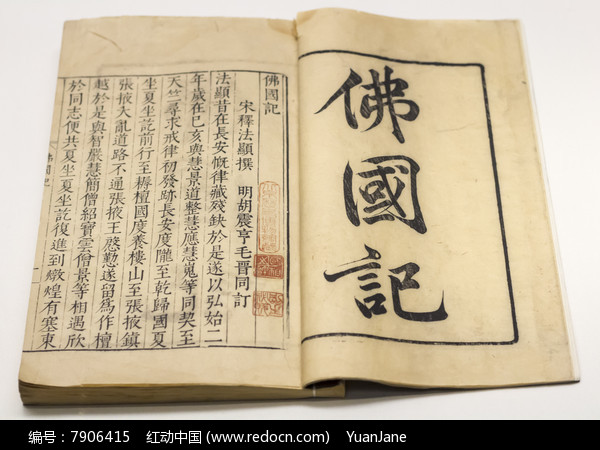 佛國記
佛國記
宋釋法顯撰　明胡震亨毛晉同訂
法顯昔在長安慨律藏殘缺於是遂以弘始二
年歲在己亥與慧景道整慧應慧嵬等同契至
天竺尋求戒律初發跡長安度隴至乾歸國夏
坐夏坐訖前行至耨檀國度養樓山至張掖鎮
張掖大亂道路不通張掖王慇懃遂留爲作檀
越於是與智嚴慧簡僧紹寶雲僧景等相遇欣
於同志便共夏坐夏坐訖復進到燉煌有塞東
佛國記
一
编号：7906415　红动中国 (www.redocn.com)　YuanJane